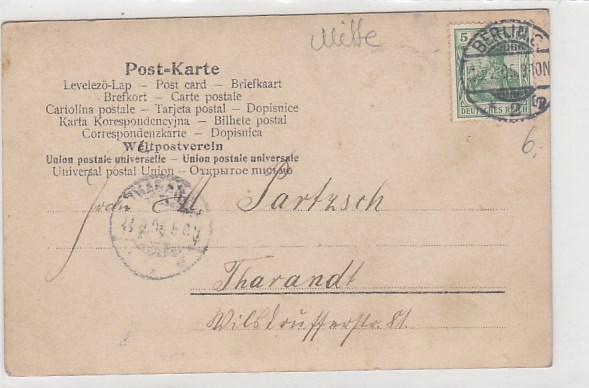 Mitte
Post-Karte
Levelező-Lap – Post card – Briefkaart
Brefkort – Carte postale
Cartolina postale – Tarjeta postal – Dopisnice
Karta Korespondencyjna – Bilhete postal
Correspondenzkarte – Dopisnica
Weltpostverein
Union postale universelle – Union postale universale
Universal postal Union – Открытое письмо
5
DEUTSCHES REICH
BERLIN C
6.
Frau M. Partzsch
THARANDT
Tharandt
Wilsdrufferstr. 81.